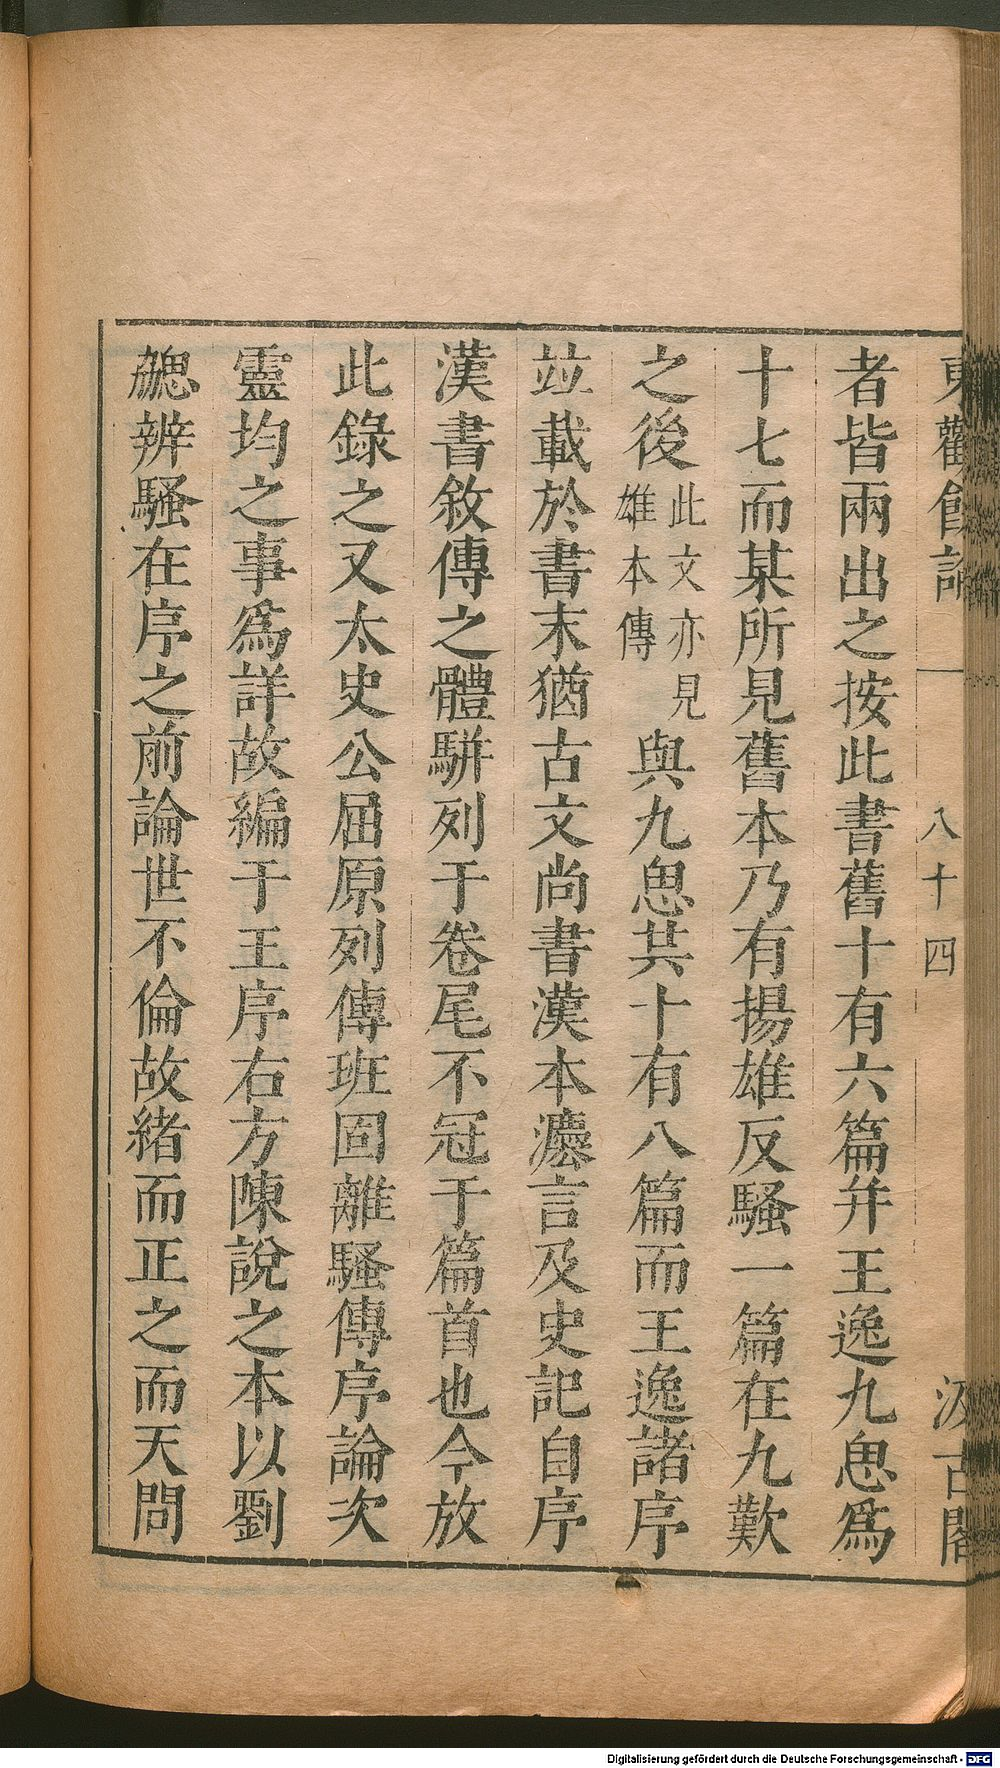 東觀餘論 一 八十四 汲古閣
者皆兩出之按此書舊十有六篇并王逸九思爲
十七而某所見舊本乃有揚雄反騷一篇在九歎
之後此文亦見雄本傳與九思共十有八篇而王逸諸序
竝載於書末猶古文尚書漢本灋言及史記自序
漢書敘傳之體駢列于卷尾不冠于篇首也今放
此錄之又太史公屈原列傳班固離騷傳序論次
靈均之事爲詳故編于王序右方陳說之本以劉
勰辨騷在序之前論世不倫故緒而正之而天問
Digitalisierung gefördert durch die Deutsche Forschungsgemeinschaft - DFG